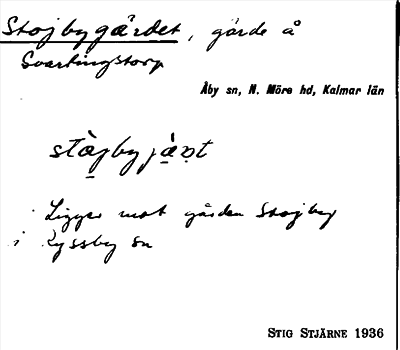 Stojbygärdet, gärde å
Svartingstorp
Åby sn, N. Möre hd, Kalmar län
stàjbyjàṇt
Ligger mot gården Stojby
i Ryssby sn
STIG STJÄRNE 1936